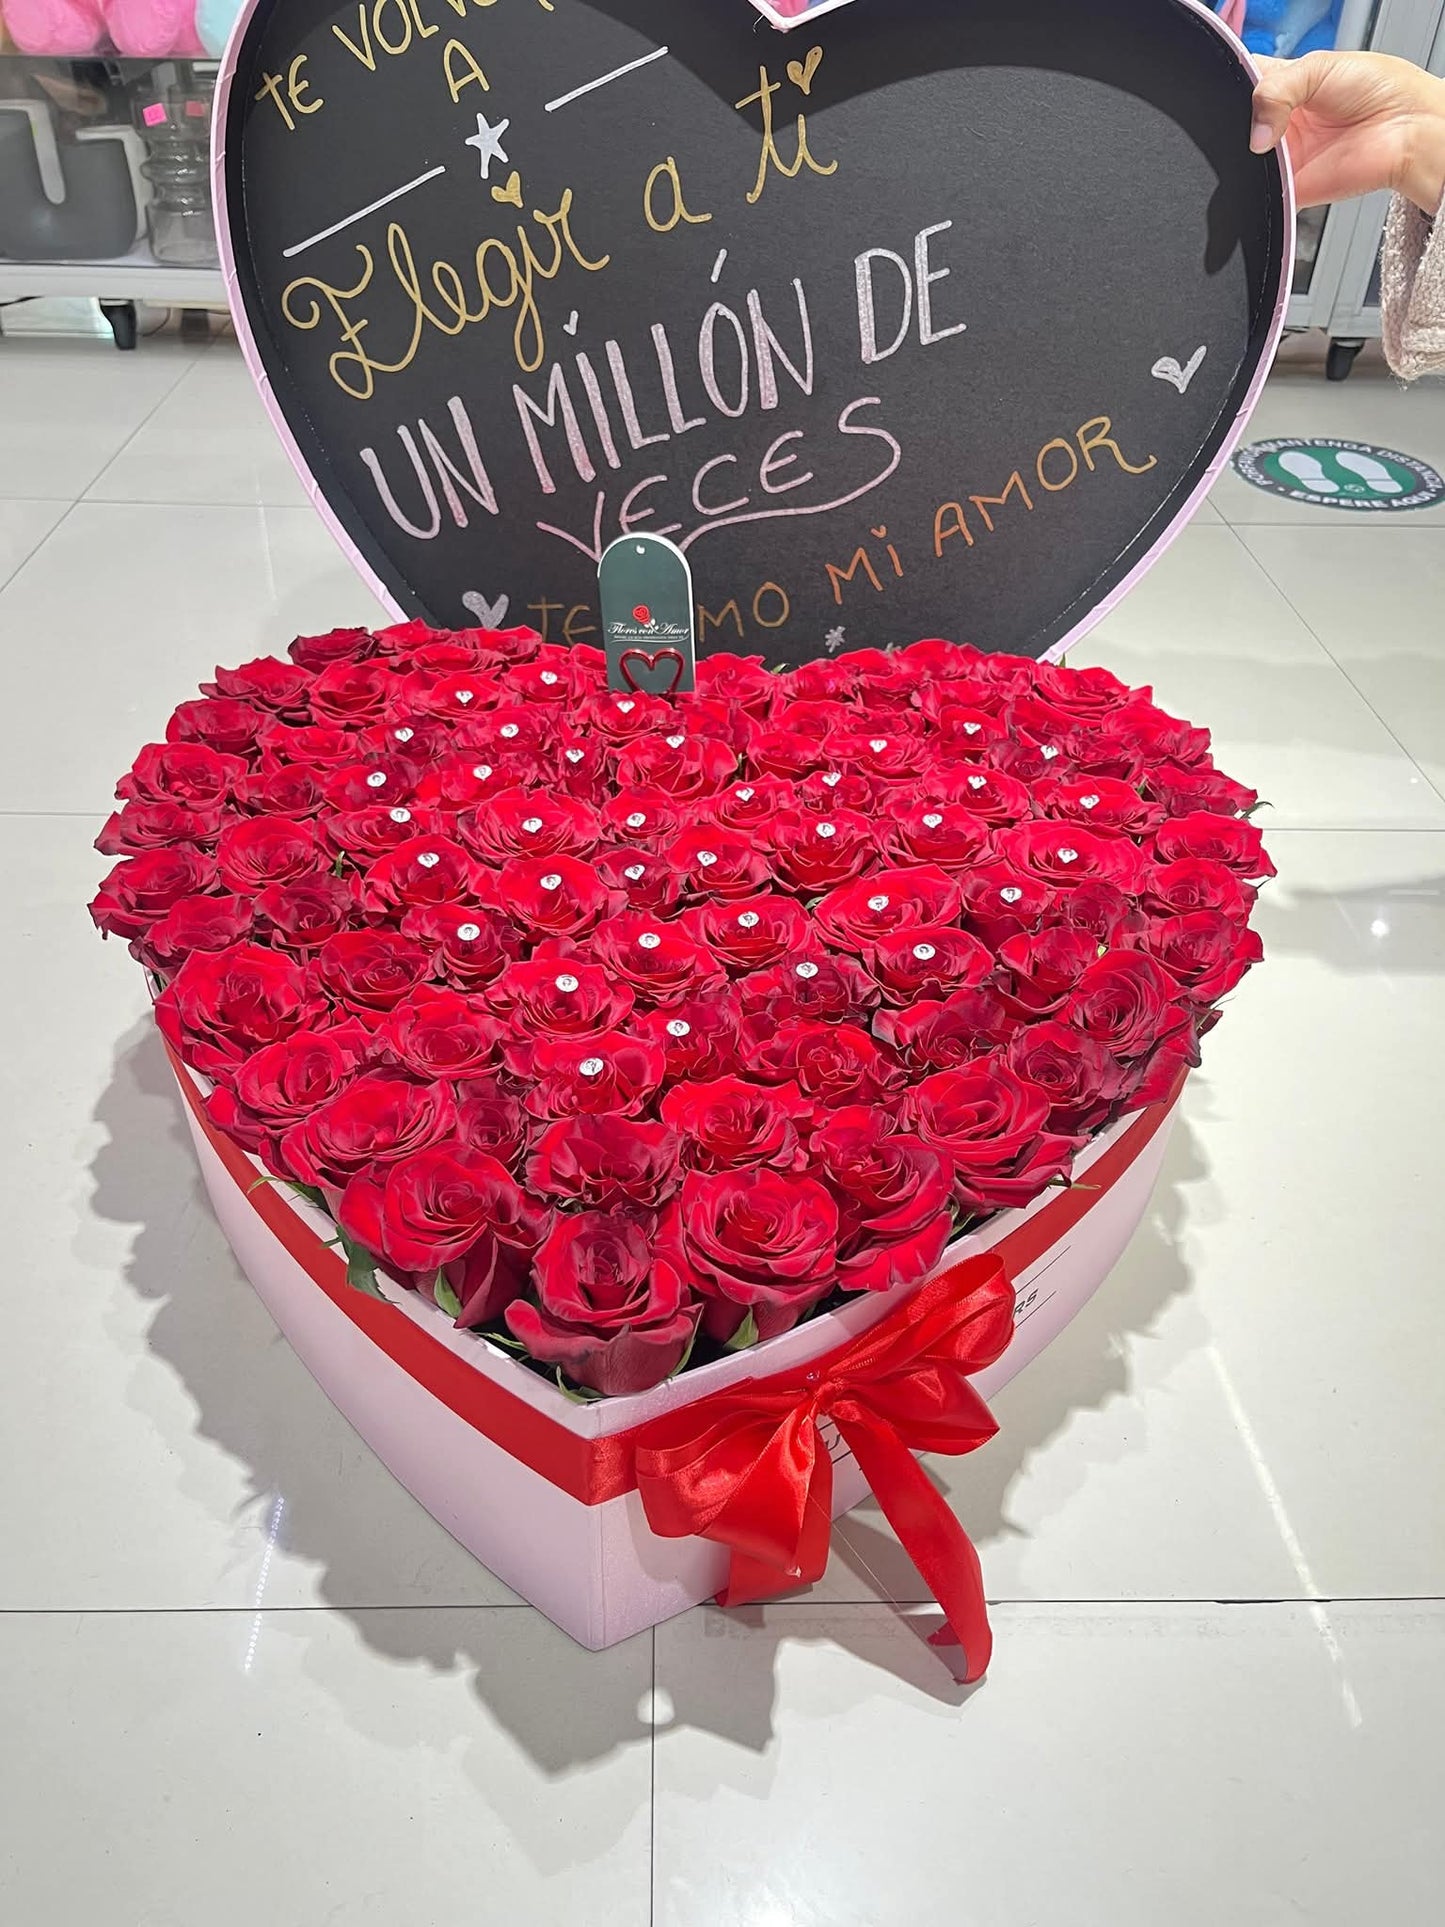 TE
A
Elegir a ti
UN MILLÓN DE
VECES
TE MO MI AMOR
Flores con Amor
MANTENGA DISTANCIA
ESPERE AQUÍ
RS